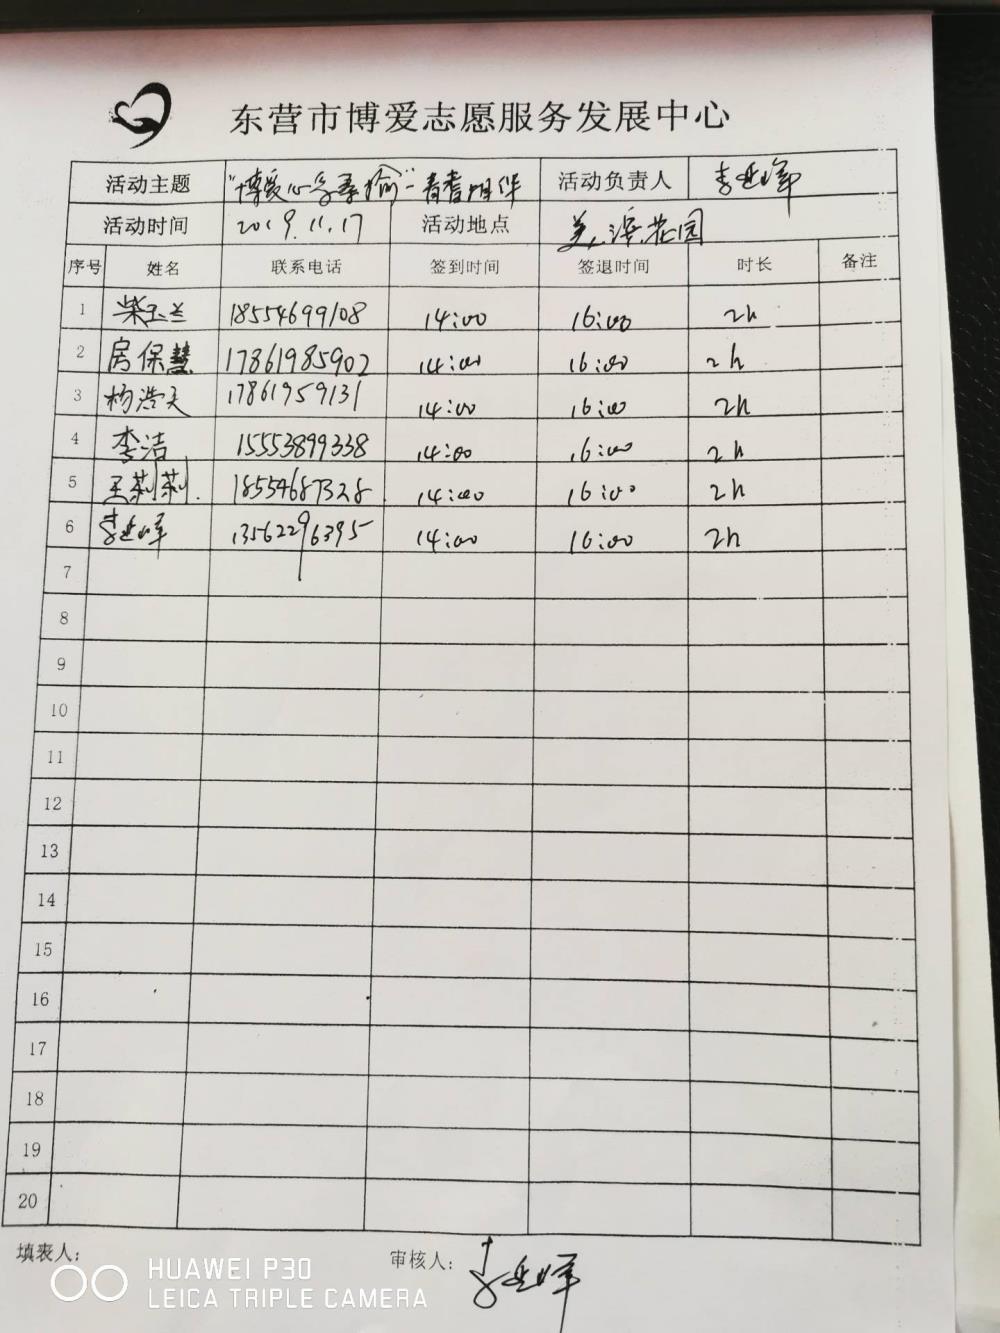 东营市博爱志愿服务发展中心
活动主题 "博爱心 桑榆"-青耆相伴 活动负责人 李延峰
活动时间 2019.11.17 活动地点 美滨花园
序号 姓名 联系电话 签到时间 签退时间 时长 备注
1 柴玉兰 18554699108 14:00 16:00 2h
2 房保慧 17861985902 14:00 16:00 2h
3 杨浩天 17861959131 14:00 16:00 2h
4 李洁 15553899338 14:00 16:00 2h
5 王莉莉 18554687328 14:00 16:00 2h
6 李延峰 13562296395 14:00 16:00 2h
7
8
9
10
11
12
13
14
15
16
17
18
19
20
填表人: 审核人: 李延峰
HUAWEI P30
LEICA TRIPLE CAMERA